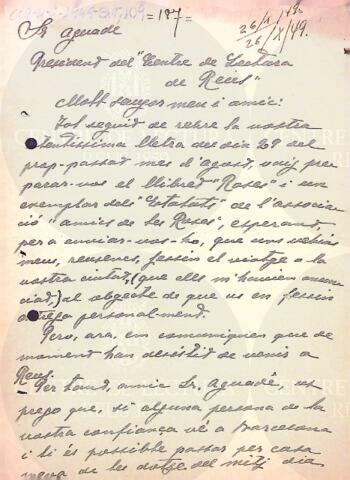 =187=
26/X/49.
26/X/49.
Sr Aguadé
President del "Centre de Lectura
de Reus"
Molt senyor meu i amic:
Tot seguit de rebre la vostra
atentissima lletra del dia 29 del
prop-passat mes d'Agost, vaig pre
parar-vos el llibret "Roses" i un
exemplar dels "Estatuts" de l'associa
ció "amics de les Roses", esperant,
per a enviar-vos-ho, que uns vehins
meus, reusencs, fessin el viatge a la
vostra ciutat, (que ells m'havien anun
ciad,) al objecte de que us en fessin
entrega personal-ment.
Pero, ara, em comuniquen que de
moment han desistit de venir a
Reus.
Per tant, amic Sr. Aguadé, us
prego que, si alguna persona de la
vostra confiança vé a Barcelona
i li és possible passar per casa
meva de les dotze del mitj dia